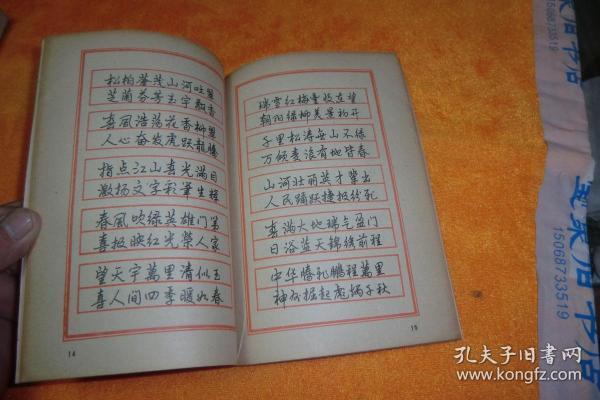 松柏蓊茂山河吐翠
芝兰芬芳玉宇飘香
春风浩荡花香柳翠
人心奋发虎跃龍腾
指点江山春光满目
激扬文字彩筆生辉
春風吹绿英雄门第
喜报映红光荣人家
望天宇萬里清似玉
喜人间四季暖如春
14
瑞雪红梅豊收在望
朝阳绿柳美景初开
千里松涛无山不绿
万顷麦浪有地皆春
山河壮丽英才辈出
人民踊跃捷报纷飞
春满大地瑞气盈门
日浴蓝天锦绣前程
中华腾飞鹏程萬里
神州掘起彪炳千秋
15
15068733519
15068733519
孔夫子旧书网
www.kongfz.com